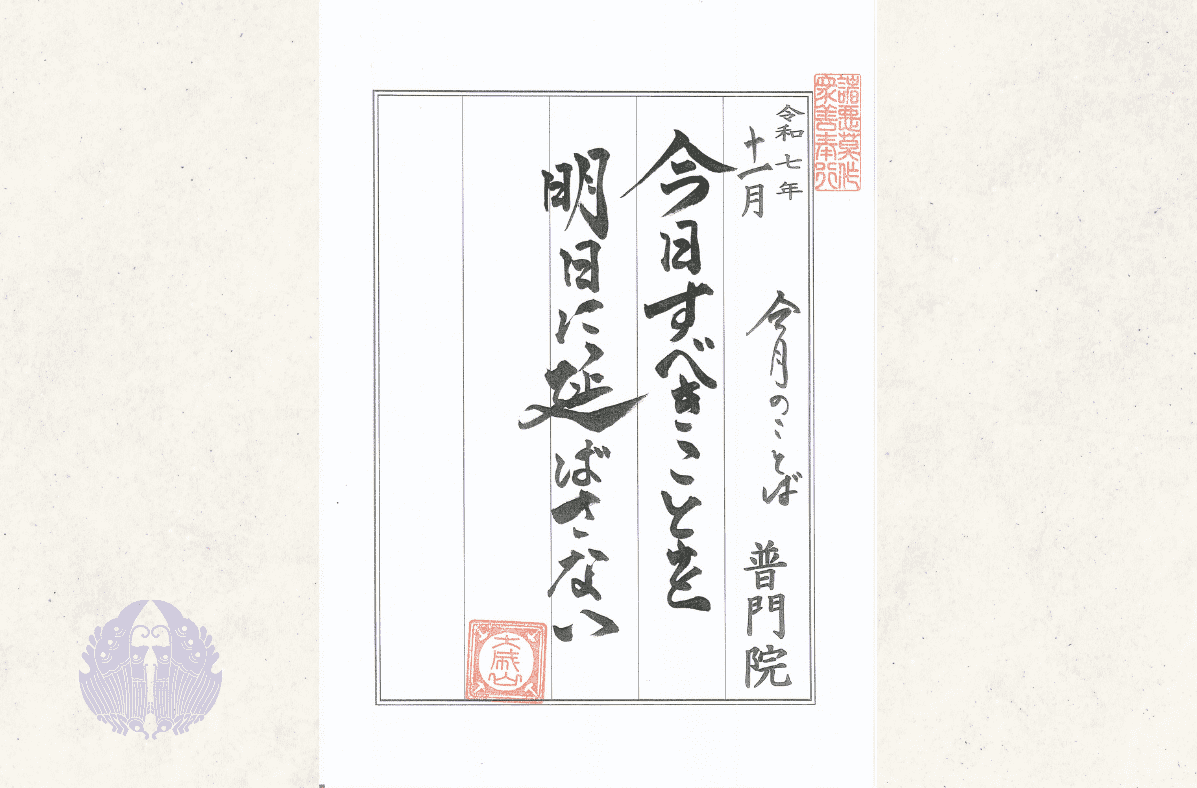 諸悪莫作
衆善奉行
令和七年
十一月
今月のことば
普門院
今日すべきことを
明日に延ばさない
大歳山